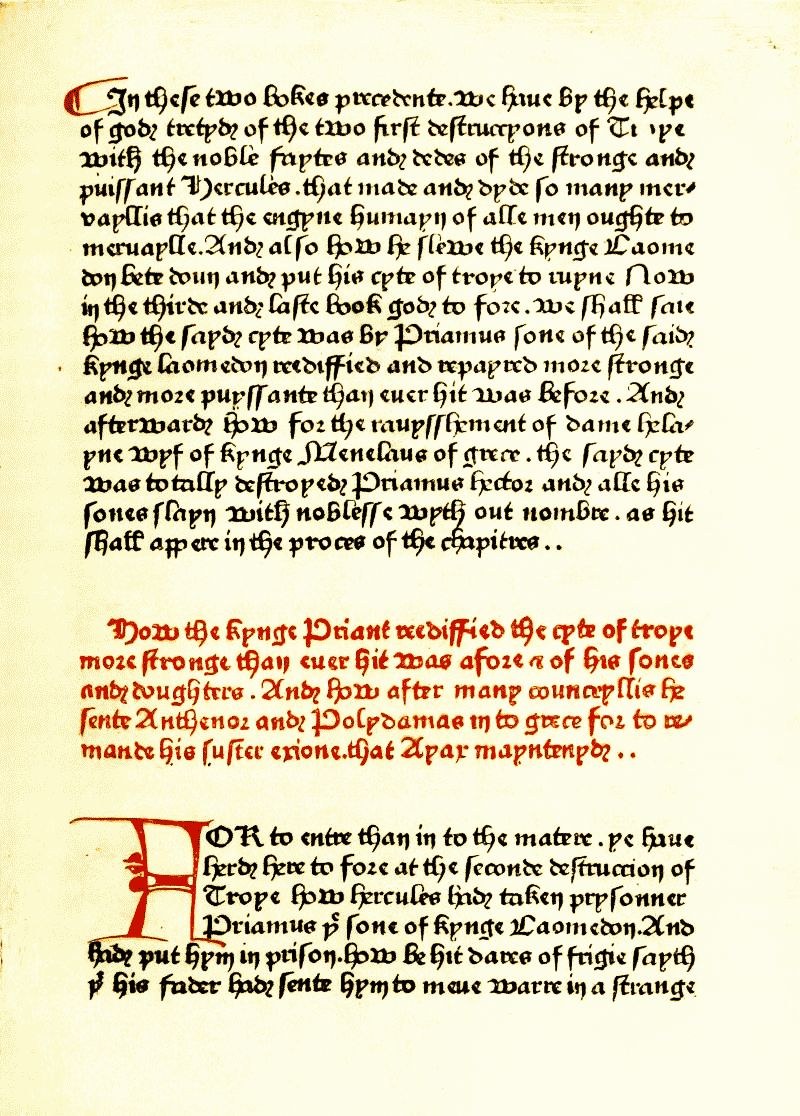 In these two bokes precedente. we haue by the helpe
of god tretyd of the two first destruccyons of Troye
with the noble faytes and dedes of the stronge and
puissant Hercules. that made and dyde so many mer-
vayllis that the engyne humayn of alle men oughte to
meruaylle. And also how he slewe the kynge Laome
don bete doun and put his cyte of troye to ruyne Now
in the thirde and laste book god to fore. we shall saie
how the sayd cyte was by Priamus sone of the said
kynge laomedon reediffied and repayred more stronge
and more puyssante than euer hit was before. And
afterward how for the rauysshement of dame hela-
yne wyf of kynge Menelaus of grece. the sayd cyte
was totally destroyed Priamus hector and alle his
sones slayn with noblesse wyth out nombre. as hit
shall appere in the proces of the chapitres..
How the kynge Priant reediffied the cyte of troye
more stronge than euer hit was afore & of his sones
and doughters. And how after many counceyllis he
sente Anthenor and Polydamas in to grece for to re-
mande his suster exione. that Ayax mayntenyd..
FOR to entre than in to the matere. ye haue
herd here to fore at the seconde destruccion of
Troye how hercules had taken prysonner
Priamus yͤ sone of kynge Laomedon. And
had put hym in prison. how be hit dares of frigie sayth
yͭ his fader had sente hym to meue warre in a strange